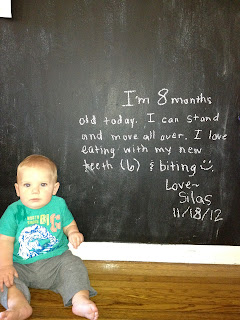 I'm 8 months
old today. I can stand
and move all over. I love
eating with my new
teeth (6) & biting ☺.
Love~
Silas
11/18/12
BIG